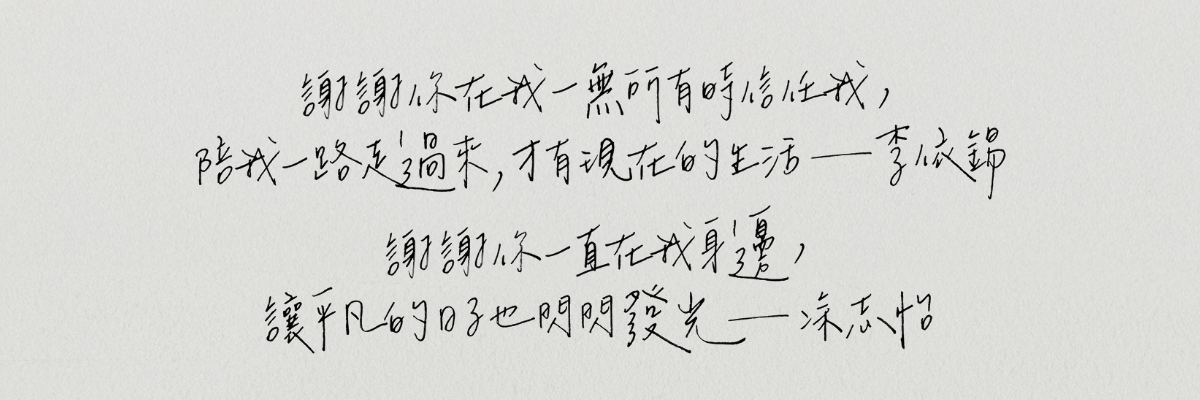 謝謝你在我一無所有時信任我，
陪我一路走過來，才有現在的生活——李依錫
謝謝你一直在我身邊，
讓平凡的日子也閃閃發光——涂志怡